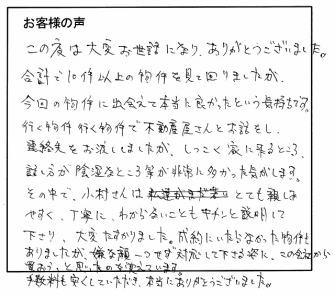 お客様の声
この度は大変お世話になり、ありがとうございました。
合計で10件以上の物件を見て回りましたが、
今回の物件に出会えて本当に良かったという気持ちです。
行く物件行く物件で不動産屋さんとお話をし、
連絡先をお渡ししましたが、しつこく家に来るところ、
話し方が陰湿なところ等が非常に多かった気がします。
その中で、小村さんは とても親しみ
やすく、丁寧に、わからないこともキチンと説明して
下さり、大変たすかりました。成約にいたらなかった物件も
ありましたが、嫌な顔一つせず対応して下さる姿に、この会社から
買おう、と思ったのを覚えています。
手数料も安くしていただき、本当にありがとうございました。